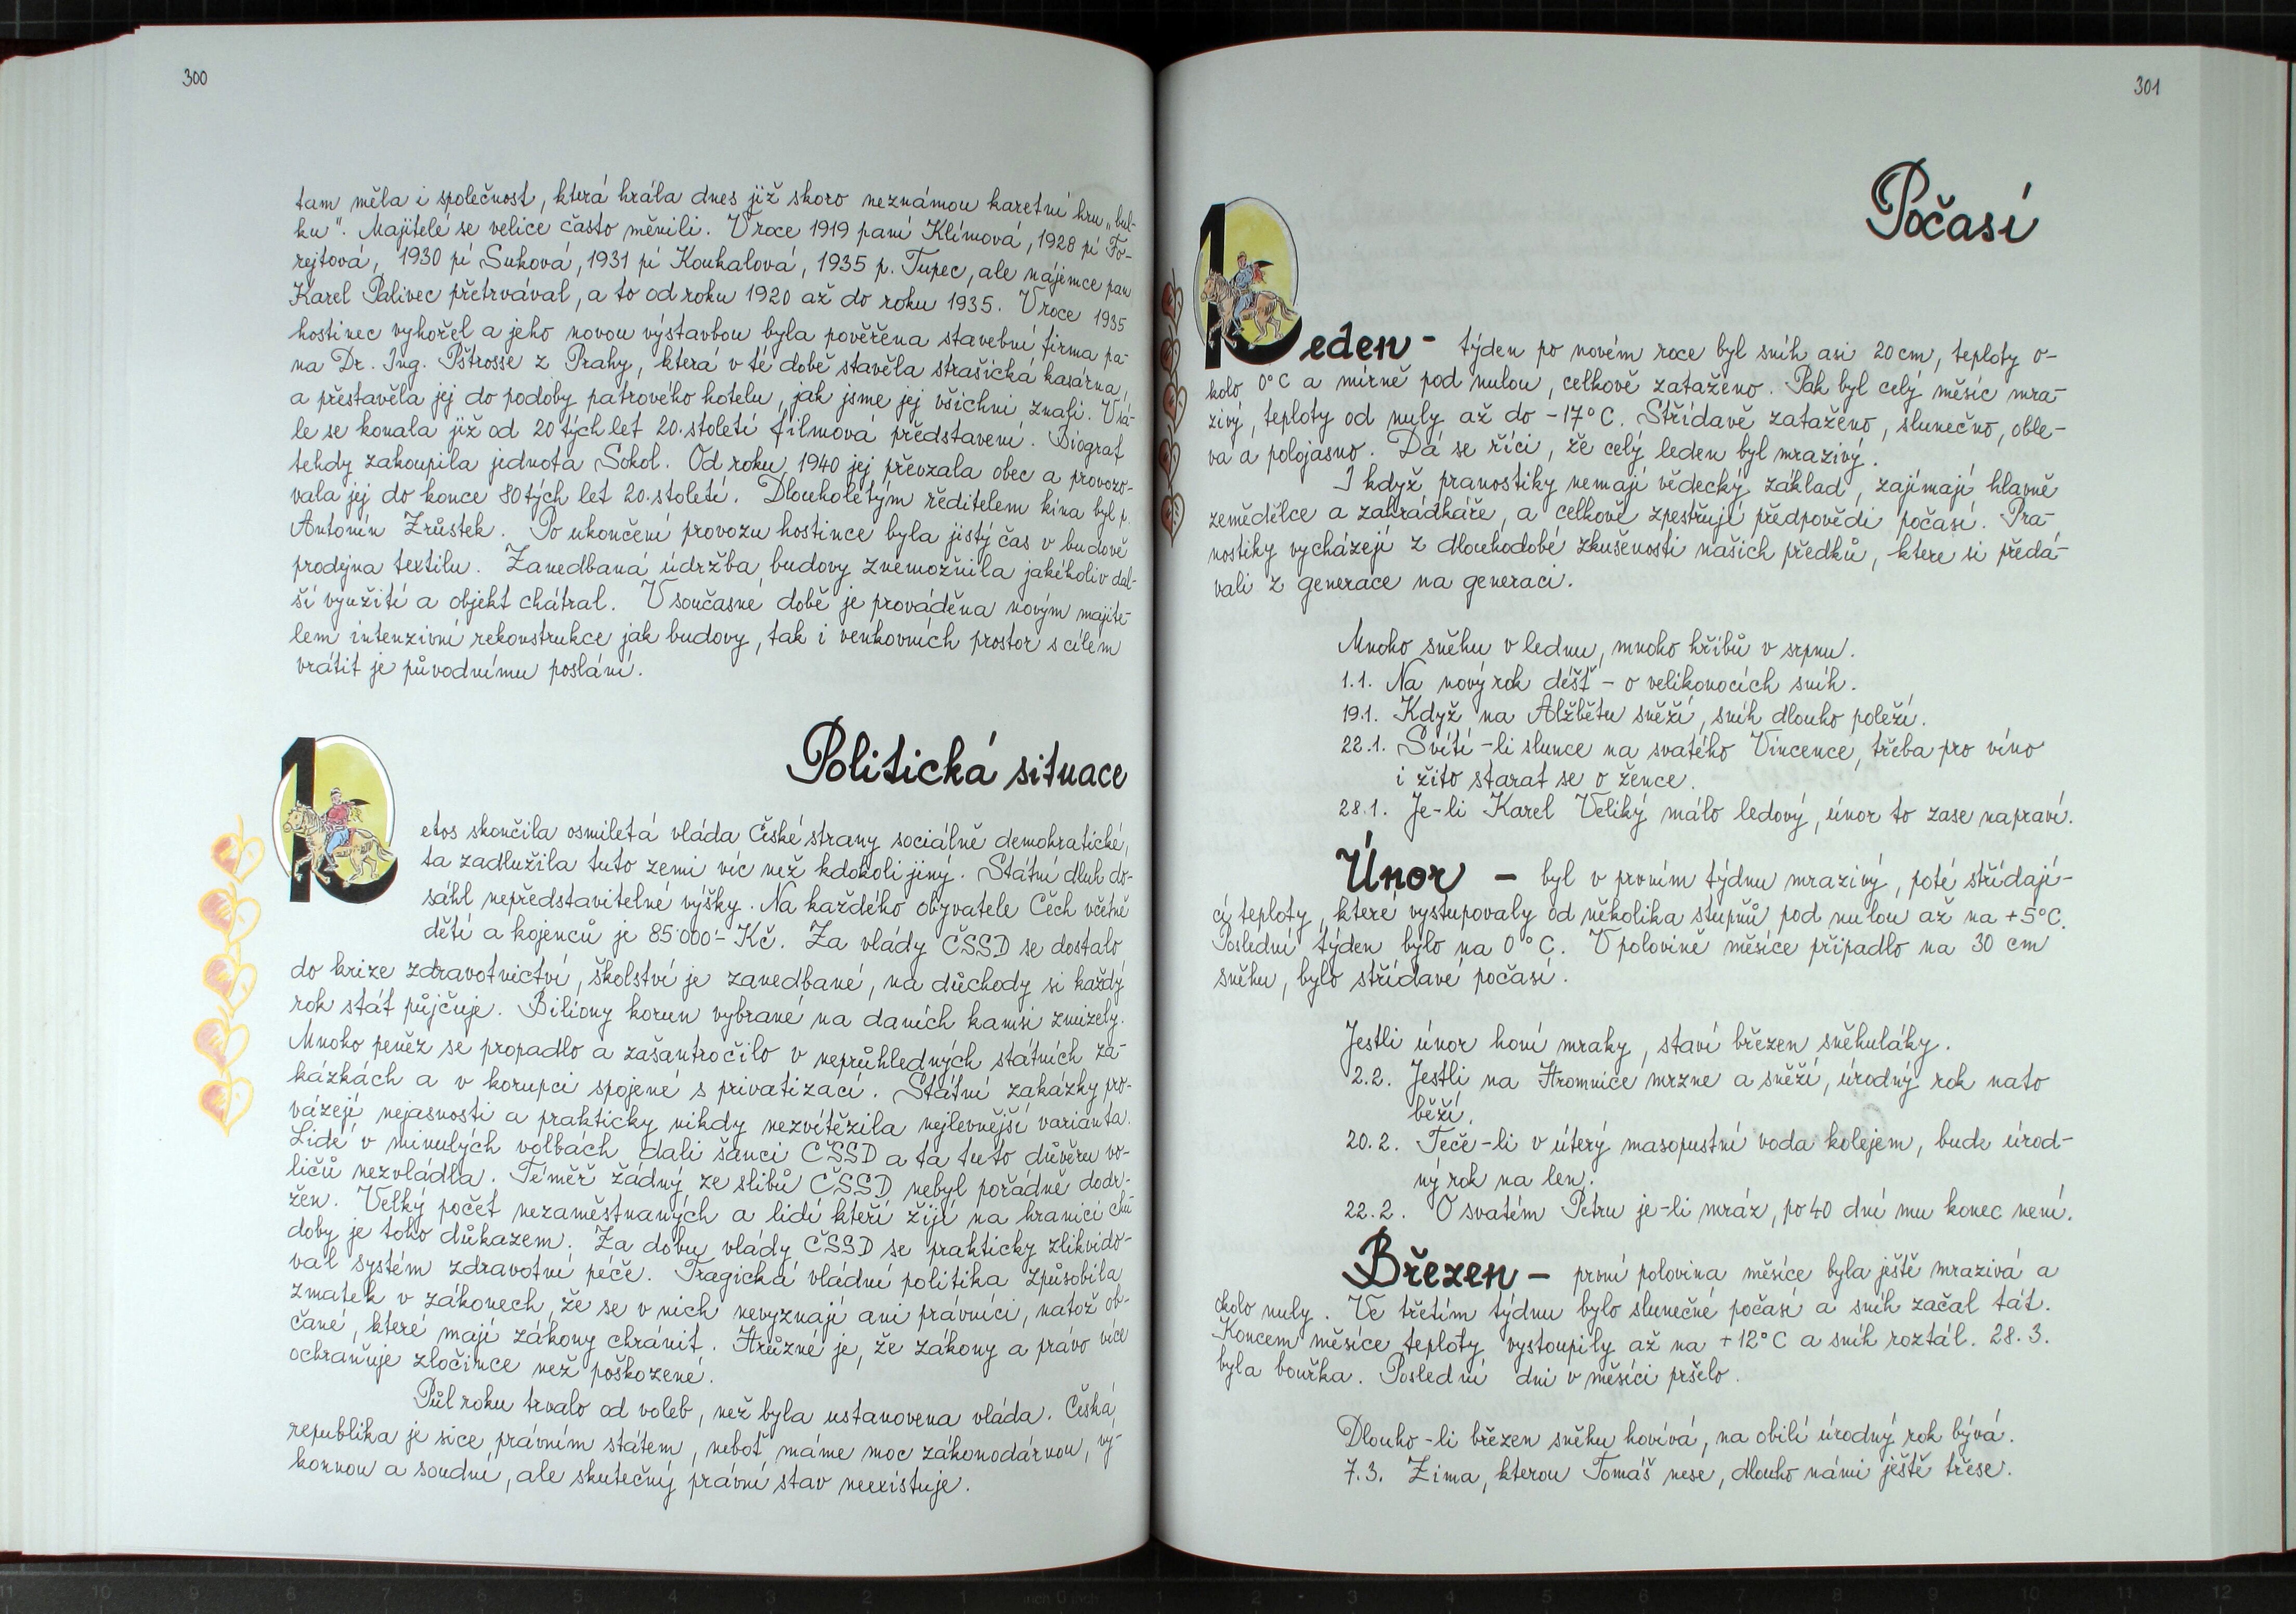 300
tam měla i společnost, která hrála dnes již skoro neznámou karetní hru „bul-
ku". Majitelé se velice často měnili. V roce 1919 paní Klímová, 1928 pí Fo-
rejtová, 1930 pí Suková, 1931 pí Koukalová, 1935 p. Tupec, ale nájemce pan
Karel Palivec přetrvával, a to od roku 1920 až do roku 1935. V roce 1935
hostinec vyhořel a jeho novou výstavbou byla pověřena stavební firma pa-
na Dr. Ing. Pštrosse z Prahy, která v té době stavěla strašická kasárna,
a přestavěla jej do podoby patrového hotelu, jak jsme jej všichni znali. V sá-
le se konala již od 20 tých let 20. století filmová představení. Biograf
tehdy zakoupila jednota Sokol. Od roku 1940 jej převzala obec a provozo-
vala jej do konce 80 tých let 20. století. Dlouholetým ředitelem kina byl p.
Antonín Zrůstek. Po ukončení provozu hostince byla jistý čas v budově
prodejna textilu. Zanedbaná údržba budovy znemožnila jakékoliv dal-
ší využití a objekt chátral. V současné době je prováděna novým majite-
lem intenzivní rekonstrukce jak budovy, tak i venkovních prostor s cílem
vrátit je původnímu poslání.
Politická situace
Letos skončila osmiletá vláda České strany sociálně demokratické,
ta zadlužila tuto zemi víc než kdokoli jiný. Státní dluh do-
sáhl nepředstavitelné výšky. Na každého obyvatele Čech včetně
dětí a kojenců je 85 000,- Kč. Za vlády ČSSD se dostalo
do krize zdravotnictví, školství je zanedbané, na důchody si každý
rok stát půjčuje. Biliony korun vybrané na daních kamsi zmizely.
Mnoho peněz se propadlo a zašantročilo v neprůhledných státních za-
kázkách a v korupci spojené s privatizací. Státní zakázky pro-
vázejí nejasnosti a prakticky nikdy nezvítězila nejlevnější varianta.
Lidé v minulých volbách dali šanci ČSSD a ta tuto důvěru vo-
ličů nezvládla. Téměř žádný ze slibů ČSSD nebyl pořádně dodr-
žen. Velký počet nezaměstnaných a lidí kteří žijí na hranici chu-
doby je toho důkazem. Za dobu vlády ČSSD se prakticky zlikvido-
val systém zdravotní péče. Tragická vládní politika způsobila
zmatek v zákonech, že se v nich nevyznají ani právníci, natož ob-
čané, které mají zákony chránit. Hrůzné je, že zákony a právo více
ochraňuje zločince než poškozené.
Půl roku trvalo od voleb, než byla ustanovena vláda. Česká
republika je sice právním státem, neboť máme moc zákonodárnou, vý-
konnou a soudní, ale skutečný právní stav neexistuje.
301
Počasí
Leden - týden po novém roce byl sníh asi 20 cm, teploty o-
kolo 0°C a mírně pod nulou, celkově zataženo. Pak byl celý měsíc mra-
zivý, teploty od nuly až do -17°C. Střídavě zataženo, slunečno, oble-
va a polojasno. Dá se říci, že celý leden byl mrazivý.
I když pranostiky nemají vědecký základ, zajímají hlavně
zemědělce a zahrádkáře, a celkově zpestřují předpovědi počasí. Pra-
nostiky vycházejí z dlouhodobé zkušenosti našich předků, ktere si předá-
vali z generace na generaci.
Mnoho sněhu v lednu, mnoho hřibů v srpnu.
1.1. Na nový rok déšť - o velikonocích sníh.
19.1. Když na Alžbětu sněží, sníh dlouho poleží.
22.1. Svítí-li slunce na svatého Vincence, třeba pro víno
i žito starat se o žence.
28.1. Je-li Karel Veliký málo ledový, únor to zase napraví.
Únor - byl v prvním týdnu mrazivý, poté střídají-
cí teploty, které vystupovaly od několika stupňů pod nulou až na +5°C.
Poslední týden bylo na 0°C. V polovině měsíce připadlo na 30 cm
sněhu, bylo střídavé počasí.
Jestli únor honí mraky, staví březen sněhuláky.
2.2. Jestli na Hromnice mrzne a sněží, úrodný rok nato
běží.
20.2. Teče-li v úterý masopustní voda kolejem, bude úrod-
ný rok na len.
22.2. O svatém Petru je-li mráz, po 40 dní mu konec není.
Březen - první polovina měsíce byla ještě mrazivá a
okolo nuly. Ve třetím týdnu bylo slunečné počasí a sníh začal tát.
Koncem měsíce teploty vystoupily až na +12°C a sníh roztál. 28.3.
byla bouřka. Poslední dni v měsíci pršelo.
Dlouho-li březen sněhu hovívá, na obilí úrodný rok bývá.
7.3. Zima, kterou Tomáš nese, dlouho námi ještě třese.